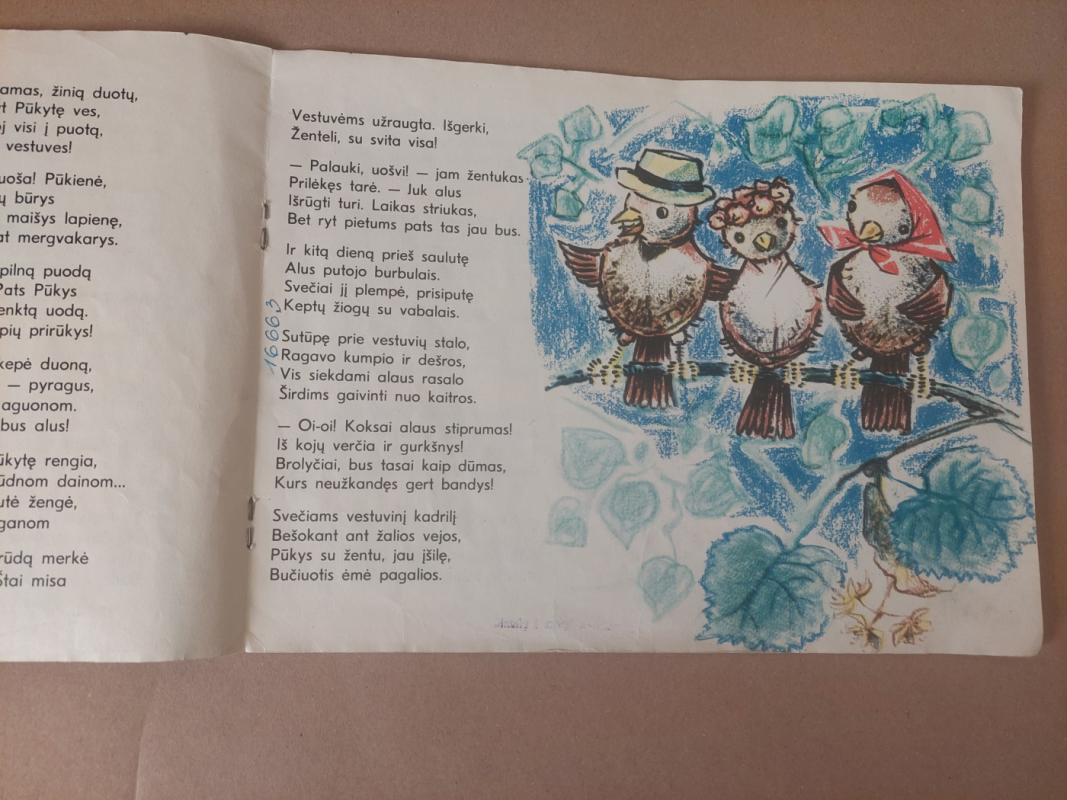 amas, žinią duotų,
t Pūkytę ves,
j visi į puotą,
vestuves!
uoša! Pūkienė,
ų būrys
maišys lapienę,
at mergvakarys.
pilną puodą
Pats Pūkys
enktą uodą.
pių prirūkys!
kepė duoną,
— pyragus,
aguonom.
bus alus!
ūkytę rengia,
ūdnom dainom...
utė žengė,
ganom
rūdą merkė
Štai misa
Vestuvėms užraugta. Išgerki,
Ženteli, su svita visa!
— Palauki, uošvi! — jam žentukas
Prilėkęs tarė. — Juk alus
Išrūgti turi. Laikas striukas,
Bet ryt pietums pats tas jau bus.
Ir kitą dieną prieš saulutę
Alus putojo burbulais.
Svečiai jį plempė, prisiputę
Keptų žiogų su vabalais.
16663
Sutūpę prie vestuvių stalo,
Ragavo kumpio ir dešros,
Vis siekdami alaus rasalo
Širdims gaivinti nuo kaitros.
— Oi-oi! Koksai alaus stiprumas!
Iš kojų verčia ir gurkšnys!
Brolyčiai, bus tasai kaip dūmas,
Kurs neužkandęs gert bandys!
Svečiams vestuvinį kadrilį
Bešokant ant žalios vejos,
Pūkys su žentu, jau įšilę,
Bučiuotis ėmė pagalios.